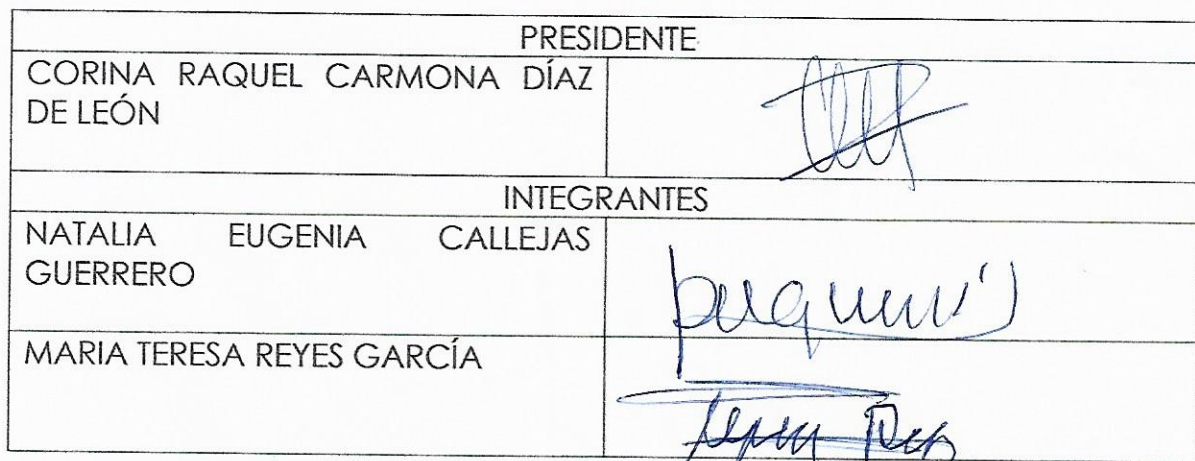 PRESIDENTE
CORINA RAQUEL CARMONA DÍAZ
DE LEÓN
INTEGRANTES
NATALIA EUGENIA CALLEJAS
GUERRERO
MARIA TERESA REYES GARCÍA